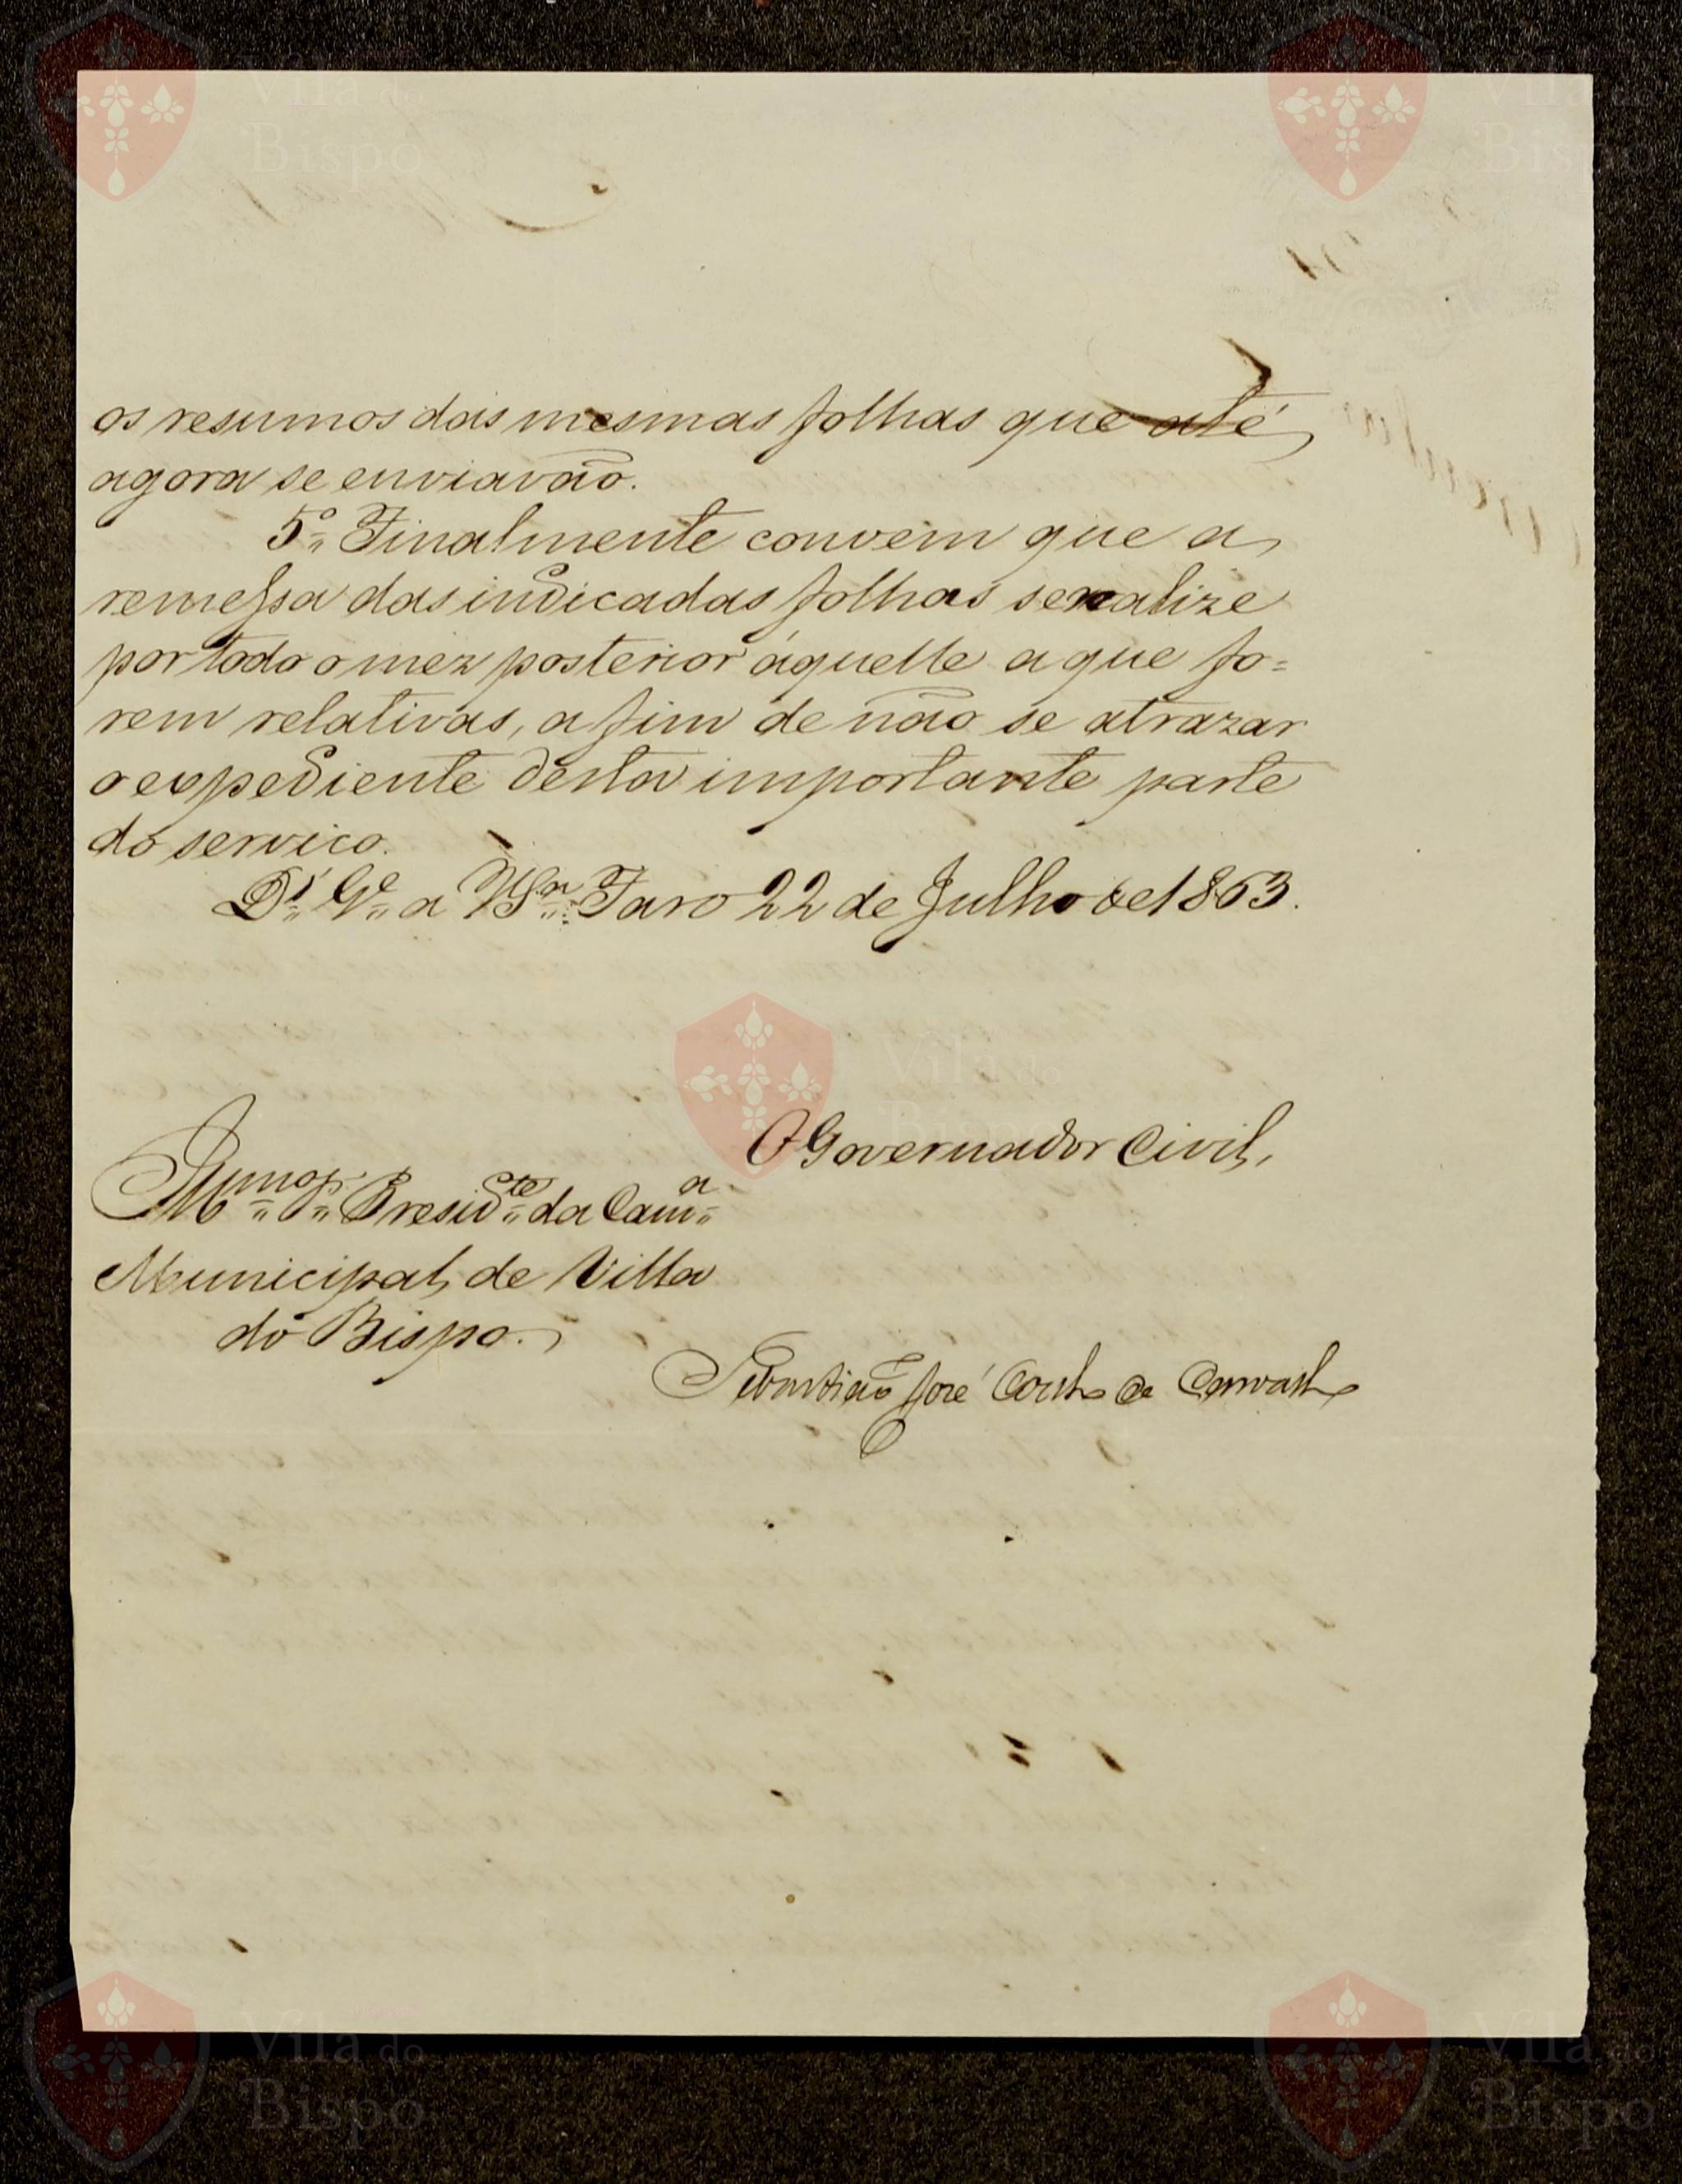 os resumos das mesmas folhas que até
agora se enviavão.
5.º Finalmente convem que a
remessa das indicadas folhas se realize
por todo o mez posterior áquelle a que fo=
rem relativas, a fim de não se atrazar
o expediente desta importante parte
do serviço.
D.s G.e a V S.a Faro 22 de Julho de 1863.
O Governador Civil,
Ill.mo Sr. Presid.te da Cam.a
Municipal de Villa
do Bispo.
Sebastião José Coelho de Carvalho
Vila do
Bispo
Vila do
Bispo
Vila do
Bispo
Vila do
Bispo
Vila do
Bispo